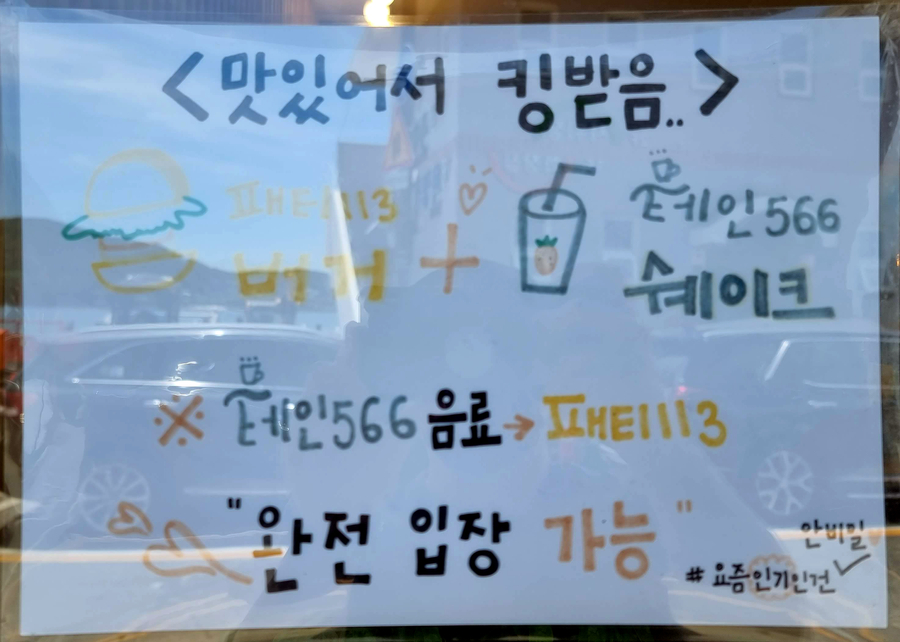 <맛있어서 킹받음..>
패티1113 버거 + 테인566 쉐이크
※ 테인566 음료→패티1113
"완전 입장 가능"
#요즘인기인건 안비밀